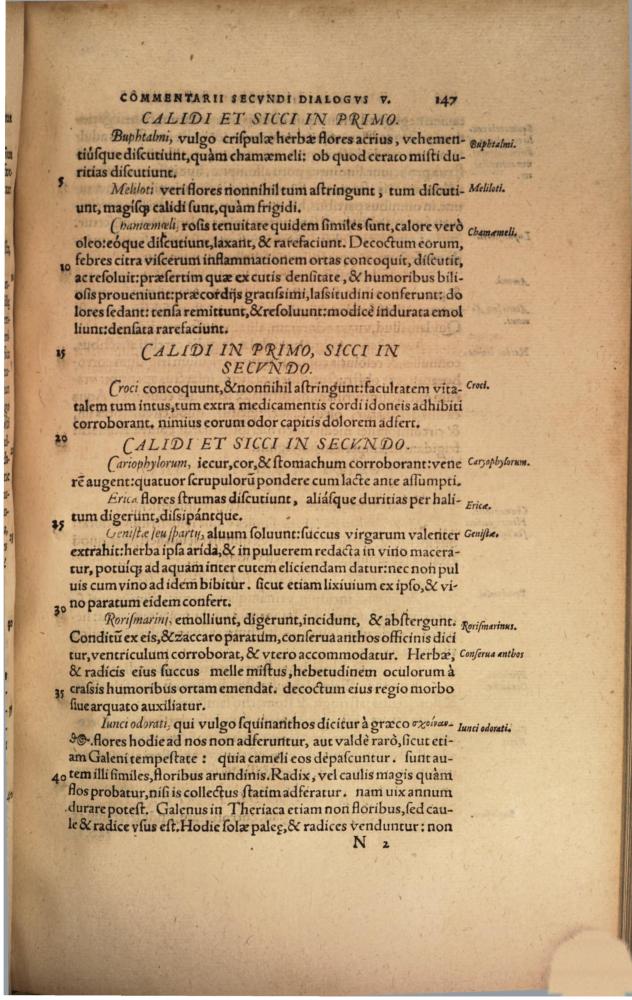 COMMENTARII SECVNDI DIALOGVS V. 147
CALIDI ET SICCI IN PRIMO.
Buphtalmi, vulgo crispulæ herbæ flores acrius, vehemen-
Buphtalmi.
tiúsque discutiunt, quàm chamæmeli: ob quod cerato misti du-
ritias discutiunt.
5
Meliloti veri flores nonnihil tum astringunt, tum discuti-
Meliloti.
unt, magisq́; calidi sunt, quàm frigidi.
Chamæmeli, rosis tenuitate quidem similes sunt, calore verò
Chamæmeli.
oleo: eóque discutiunt, laxant, & rarefaciunt. Decoctum eorum,
febres citra viscerum inflammationem ortas concoquit, discutit,
10
ac resoluit: præsertim quæ ex cutis densitate, & humoribus bili-
osis proueniunt: præcordijs gratissimi, lassitudini conferunt: do
lores sedant: tensa remittunt, & resoluunt: modicè indurata emol
liunt: densata rarefaciunt.
15
CALIDI IN PRIMO, SICCI IN
SECVNDO.
Croci concoquunt, & nonnihil astringunt: facultatem vita-
Croci.
talem tum intus, tum extra medicamentis cordi idoneis adhibiti
corroborant. nimius eorum odor capitis dolorem adfert.
20
CALIDI ET SICCI IN SECVNDO.
Cariophylorum, iecur, cor, & stomachum corroborant: vene
Caryophylorum.
rē augent: quatuor scrupulorū pondere cum lacte ante assumpti.
Ericæ flores strumas discutiunt, aliásque duritias per hali-
Ericæ.
tum digerunt, dissipántque.
25
Genistæ seu spartij, aluum soluunt: succus virgarum valenter
Genistæ.
extrahit: herba ipsa arida, & in puluerem redacta in vino macera-
tur, potuiq́; ad aquam inter cutem eliciendam datur: nec non pul
uis cum vino ad idem bibitur. sicut etiam lixiuium ex ipso, & vi-
no paratum eidem confert.
30
Rorismarini, emolliunt, digerunt, incidunt, & abstergunt.
Rorismarinus.
Conditū ex eis, & zaccaro paratum, conserua anthos officinis dici
tur, ventriculum corroborat, & vtero accommodatur. Herbæ,
Conserua anthos
& radicis eius succus melle mistus, hebetudinem oculorum à
crassis humoribus ortam emendat. decoctum eius regio morbo
35
siue arquato auxiliatur.
Iunci odorati, qui vulgo squinanthos dicitur à græco
Iunci odorati.
flores hodie ad nos non adferuntur, aut valdè rarò, sicut eti-
am Galeni tempestate: quia cameli eos depascuntur. sunt au-
tem illi similes, floribus arundinis. Radix, vel caulis magis quàm
40
flos probatur, nisi is collectus statim adferatur. nam uix annum
durare potest. Galenus in Theriaca etiam non floribus, sed cau-
le & radice vsus est. Hodie solæ paleę, & radices venduntur: non
N 2